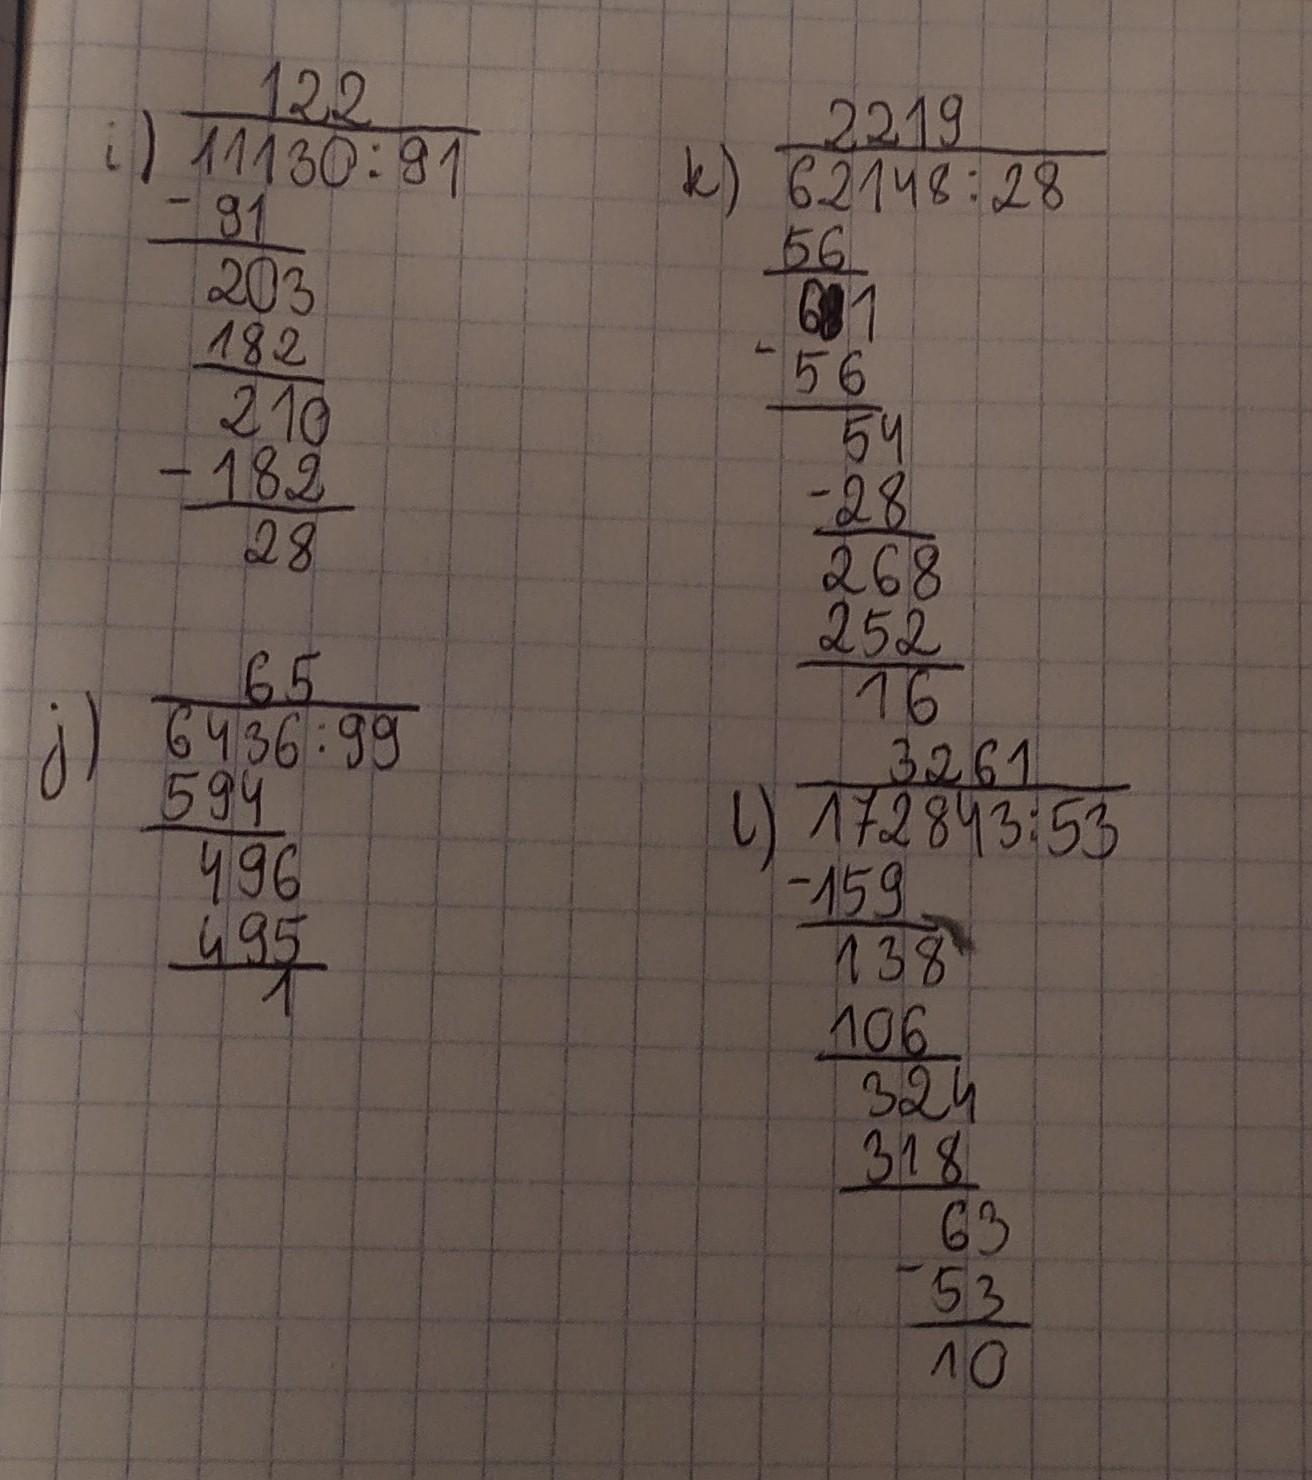 122
i) 11130:91
-91
203
182
210
-182
28
65
j) 6436:99
594
496
495
1
2219
k) 62148:28
56
61
-56
54
-28
268
252
16
3261
l) 172843:53
-159
138
106
324
318
63
-53
10